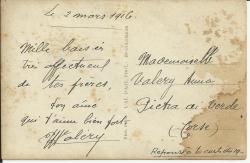 Le 2 mars 1916.
Mille baisers
très affectueux
de tes frères,
ton ainé
qui t'aime bien fort
Valery
Mademoiselle
Valery Anna
Pietra di Verde
(Corse)